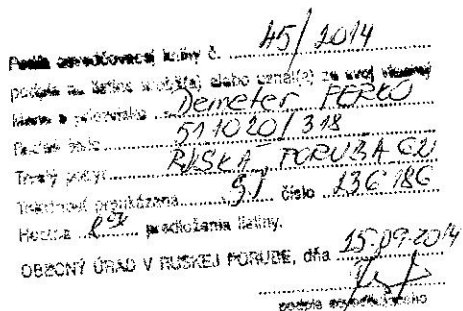 Podľa osvedčovacej knihy č. 45/2014
podpis na listine urobil(a) alebo uznal(a) za svoj vlastný
Meno a priezvisko Demeter PERKO
Rodné číslo 511020/318
Trvalý pobyt RUSKÁ PORUBA
Totožnosť preukázaná číslo 136186
Hodina predloženia listiny.
OBECNÝ ÚRAD V RUSKEJ PORUBE, dňa 15.09.2014
podpis